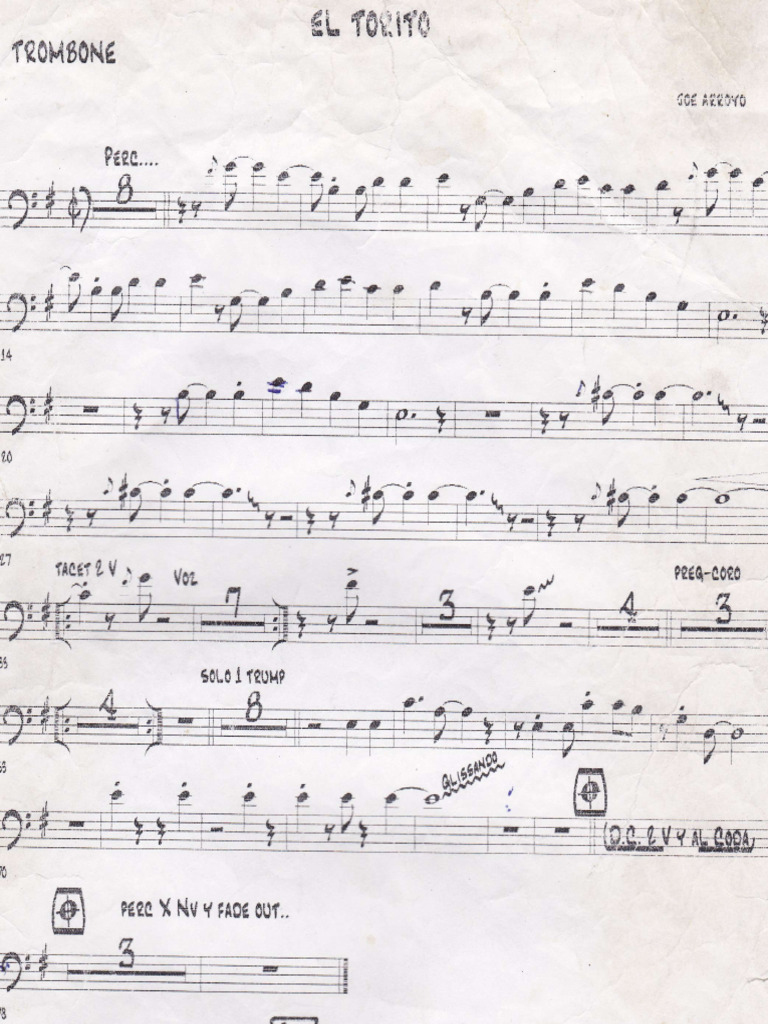 EL TORITO
TROMBONE
JOE ARROYO
PERC....
8
14
20
27
TACET 2 V
VOZ
PREG-CORO
7
3
4
3
SOLO 1 TRUMP
4
8
GLISSANDO
(D.C. 2 V Y AL CODA)
PERC X NV Y FADE OUT..
3